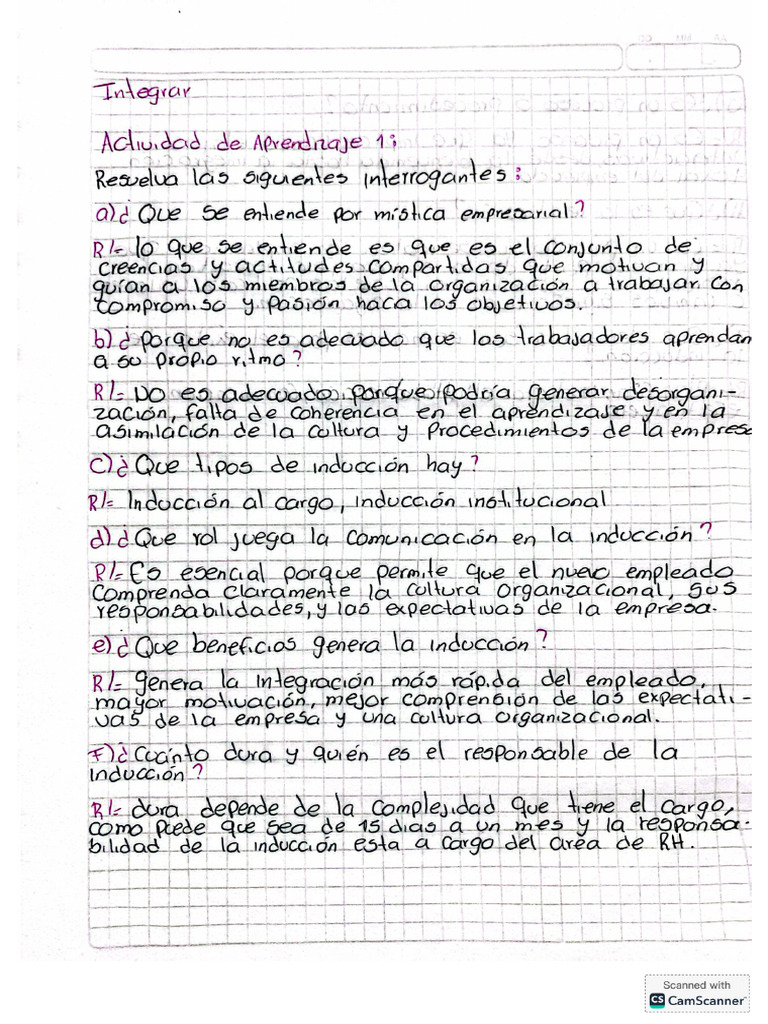 Integrar
Actividad de Aprendizaje 1:
Resuelva las siguientes interrogantes:
a)¿ Que se entiende por mística empresarial?
R/= lo que se entiende es que es el conjunto de
creencias y actitudes compartidas que motivan y
guían a los miembros de la organización a trabajar con
compromiso y pasión haca los objetivos.
b)¿ porque no es adecuado que los trabajadores aprendan
a su propio ritmo?
R/= No es adecuado porque podría generar desorgani-
zación, falta de coherencia en el aprendizaje y en la
asimilación de la cultura y procedimientos de la empresa
c)¿Que tipos de inducción hay?
R/= Inducción al cargo, inducción institucional
d)¿Que rol juega la comunicación en la inducción?
R/= Es esencial porque permite que el nuevo empleado
comprenda claramente la cultura organizacional, sus
responsabilidades, y las expectativas de la empresa.
e)¿Que beneficios genera la inducción?
R/= genera la integración más rápida del empleado,
mayor motivación, mejor comprensión de las expectati-
vas de la empresa y una cultura organizacional.
f)¿Cuánto dura y quién es el responsable de la
inducción?
R/= dura depende de la complejidad que tiene el cargo,
como puede que sea de 15 dias a un mes y la responsa-
bilidad de la inducción esta a cargo del area de RH.
Scanned with
CS CamScanner